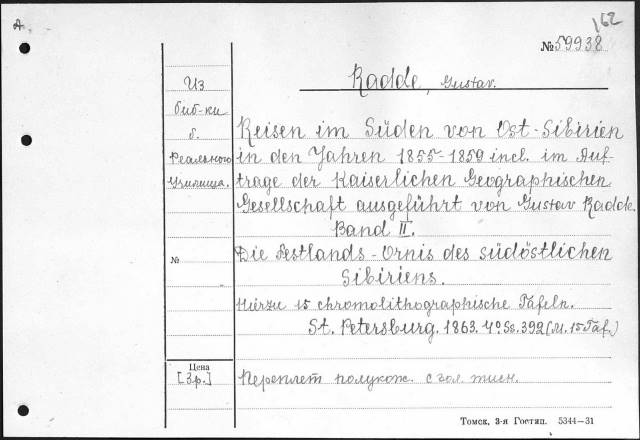 A.
162
№ 59938
Radde, Gustav.
Из
биб-ки
б.
Реального
Училища.
Reisen im Süden von Ost-Sibirien
in den Jahren 1855-1859 incl. im Auf-
trage der Kaiserlichen Geographischen
Gesellschaft ausgeführt von Gustav Radde.
Band II.
№
Die Festlands-Ornis des südöstlichen
Sibiriens.
Hierzu 15 chromolithographische Tafeln.
St. Petersburg. 1863. 4° Ss. 392 (M. 15 Taf.)
Цена
[3р.]
Переплет полукож. с зол. тисн.
Томск, 3-я Гостип. 5344—31